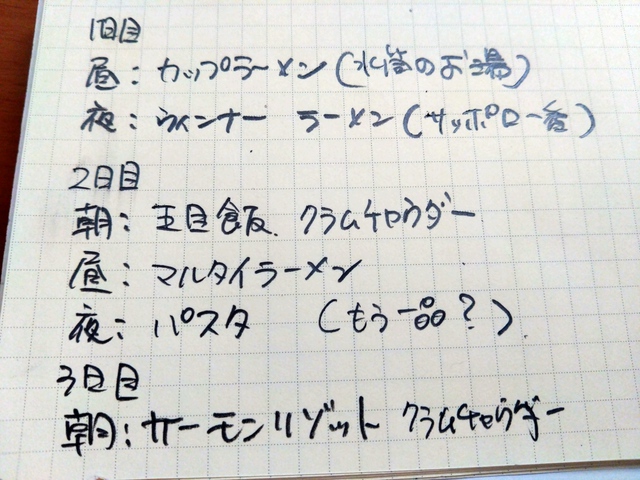 1日目
昼: カップラーメン(水筒のお湯)
夜: ウィンナー ラーメン(サッポロ一番)
2日目
朝: 五目飯、クラムチャウダー
昼: マルタイラーメン
夜: パスタ (もう一品?)
3日目
朝: サーモンリゾット クラムチャウダー